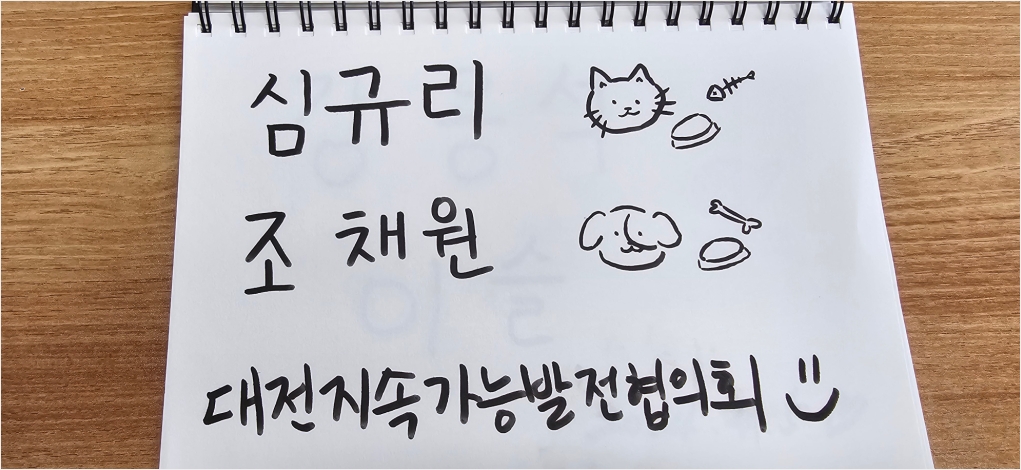 심규리
조채원
대전지속가능발전협의회